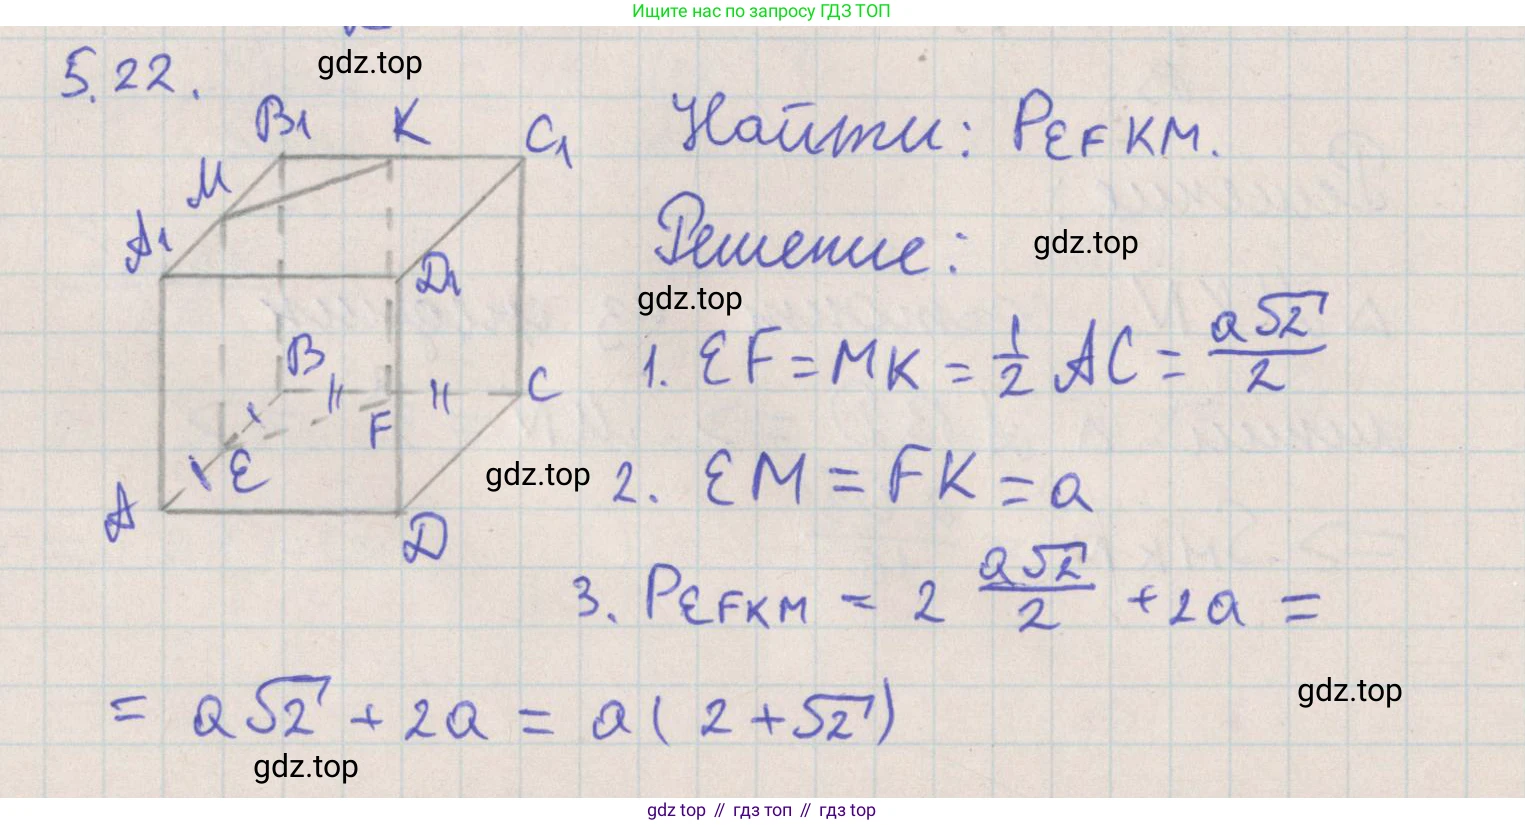 Ищите нас по запросу ГДЗ ТОП
5.22.
gdz.top
B1 K C1
M
A1
D1
B
C
F
E
A
D
Найти: PEFKM.
Решение:
gdz.top
gdz.top
1. EF = MK = 1/2 AC = a√2/2
gdz.top
2. EM = FK = a
3. PEFKM = 2 a√2/2 + 2a =
gdz.top
= a√2 + 2a = a(2 + √2)
gdz.top
gdz top // гдз топ // гдз top